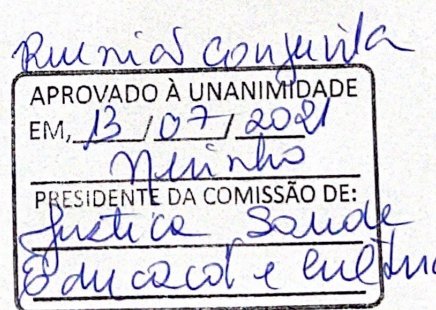 Reunião conjunta
APROVADO À UNANIMIDADE
EM, 13 / 07 / 2021
Neninho
PRESIDENTE DA COMISSÃO DE:
Justiça Saúde
Educação e cultura